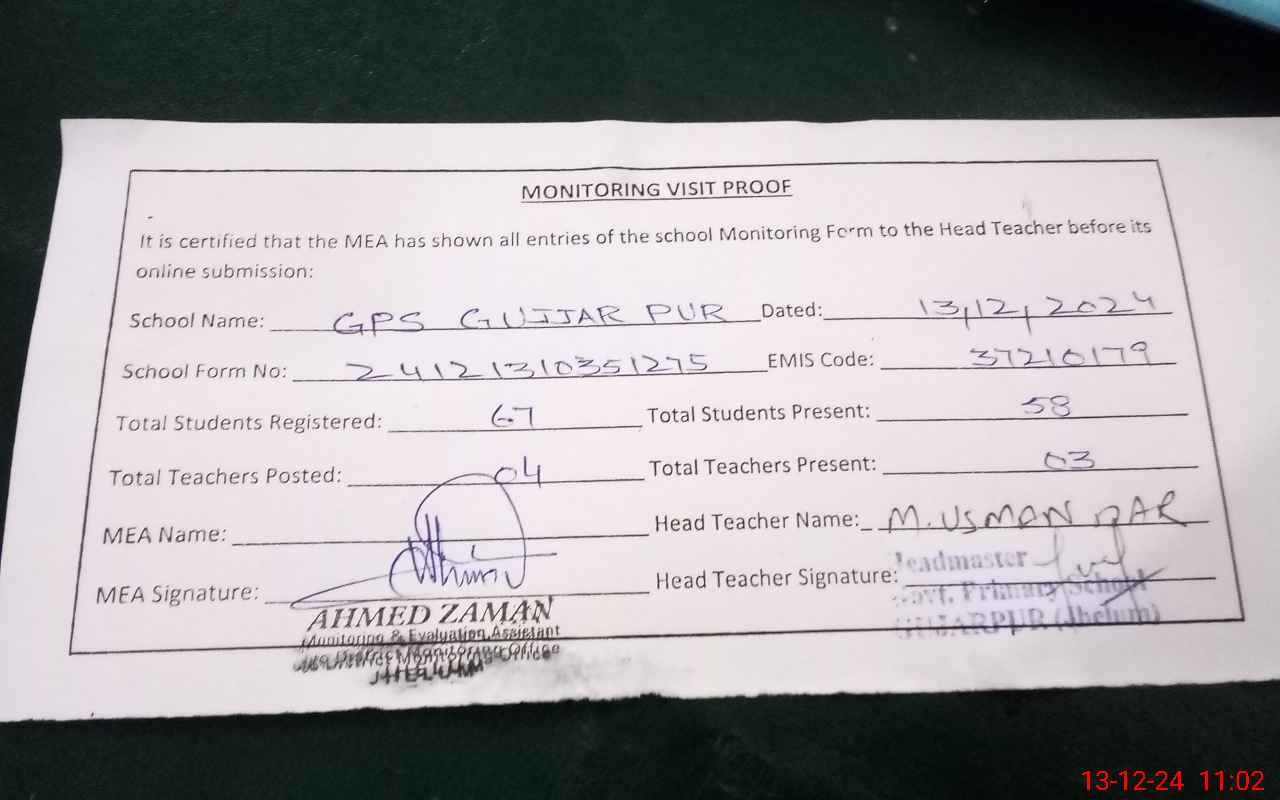 MONITORING VISIT PROOF
It is certified that the MEA has shown all entries of the school Monitoring Form to the Head Teacher before its
online submission:
School Name: GPS GUJJAR PUR Dated: 13,12,2024
School Form No: 24121310351275 EMIS Code: 37210179
Total Students Registered: 67 Total Students Present: 58
Total Teachers Posted: 04 Total Teachers Present: 03
MEA Name: Head Teacher Name: M. USMAN DAR
MEA Signature: Head Teacher Signature:
Headmaster
Govt. Primary School
GUJARPUR (Jhelum)
AHMED ZAMAN
Monitoring & Evaluation Assistant
District Monitoring Office
JHELUM
13-12-24 11:02